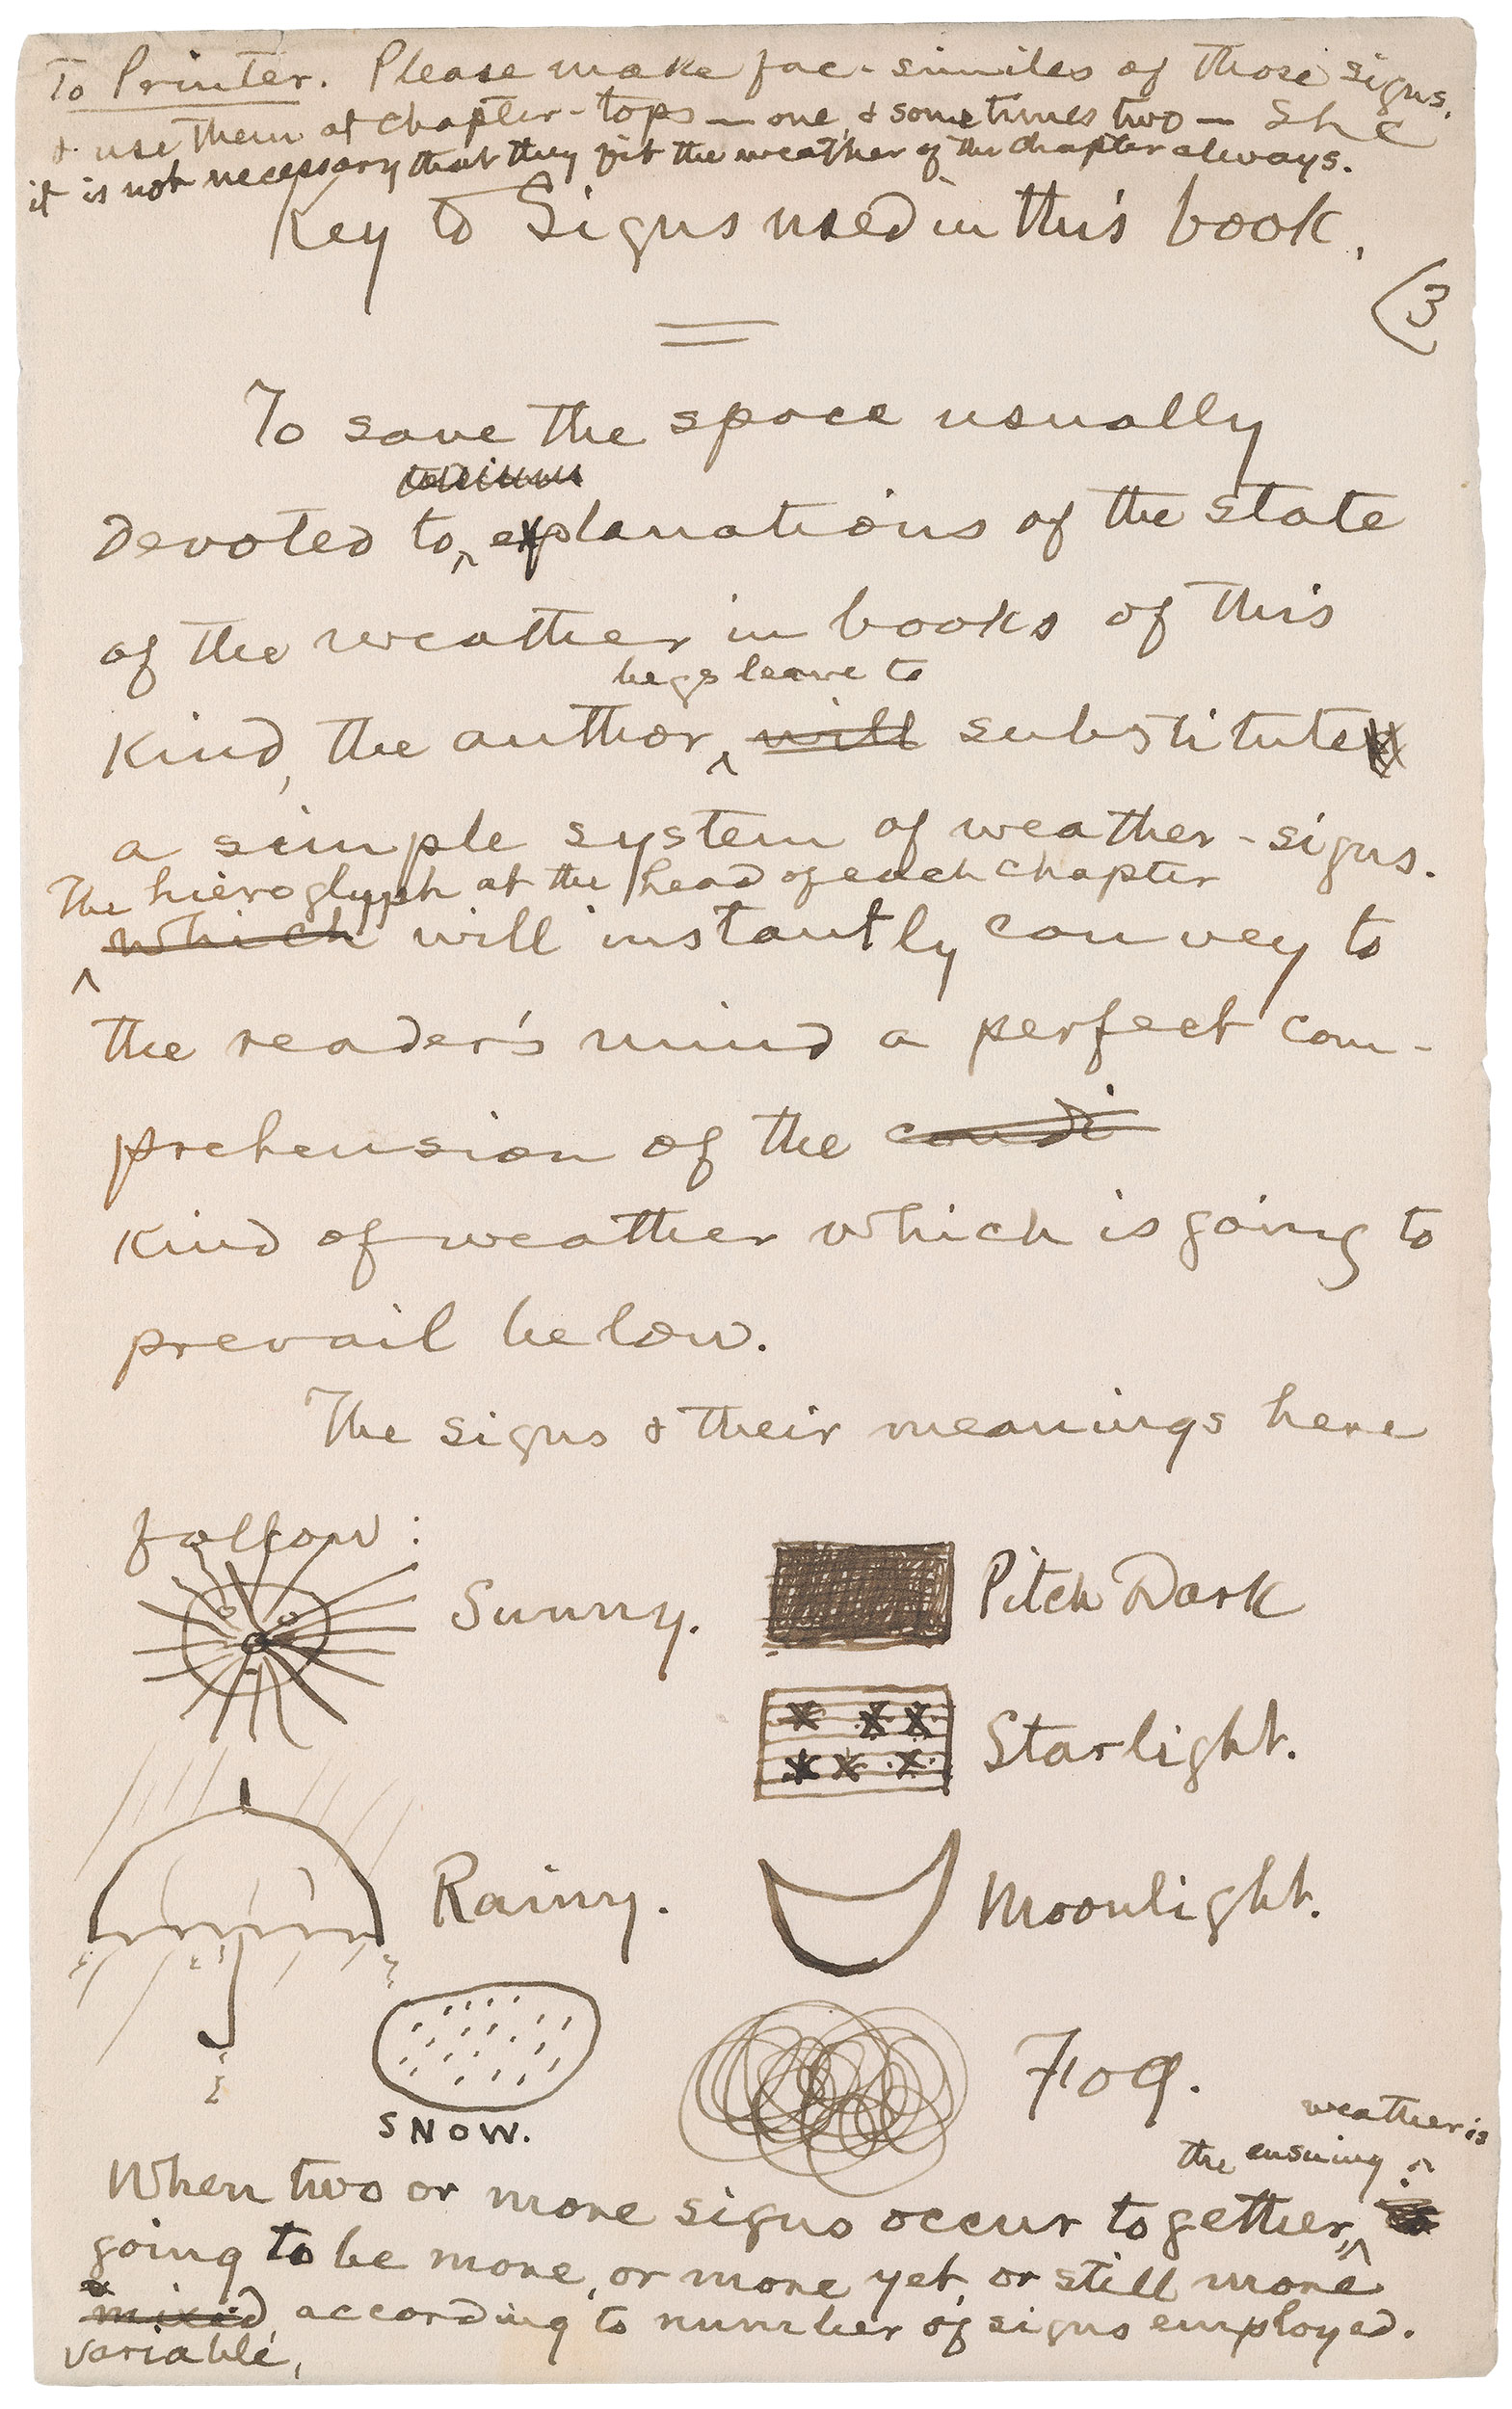 To Printer. Please make fac-similes of those signs,
& use them at chapter-tops — one, & sometimes two —
it is not necessary that they fit the weather of the chapter always.
Key to Signs used in this book.
(3
To save the space usually
devoted to explanations of the state
of the weather in books of this
begs leave to
kind, the author, will substitute
a simple system of weather-signs.
The hieroglyph at the head of each chapter
which will instantly convey to
the reader's mind a perfect com-
prehension of the condi
kind of weather which is going to
prevail below.
The signs & their meanings here
follow:
Sunny.
Pitch Dark
Starlight.
Rainy.
Moonlight.
SNOW.
Fog.
weather is
the ensuing
When two or more signs occur together,
going to be more, or more yet, or still more
mixed, according to number of signs employed.
variable,